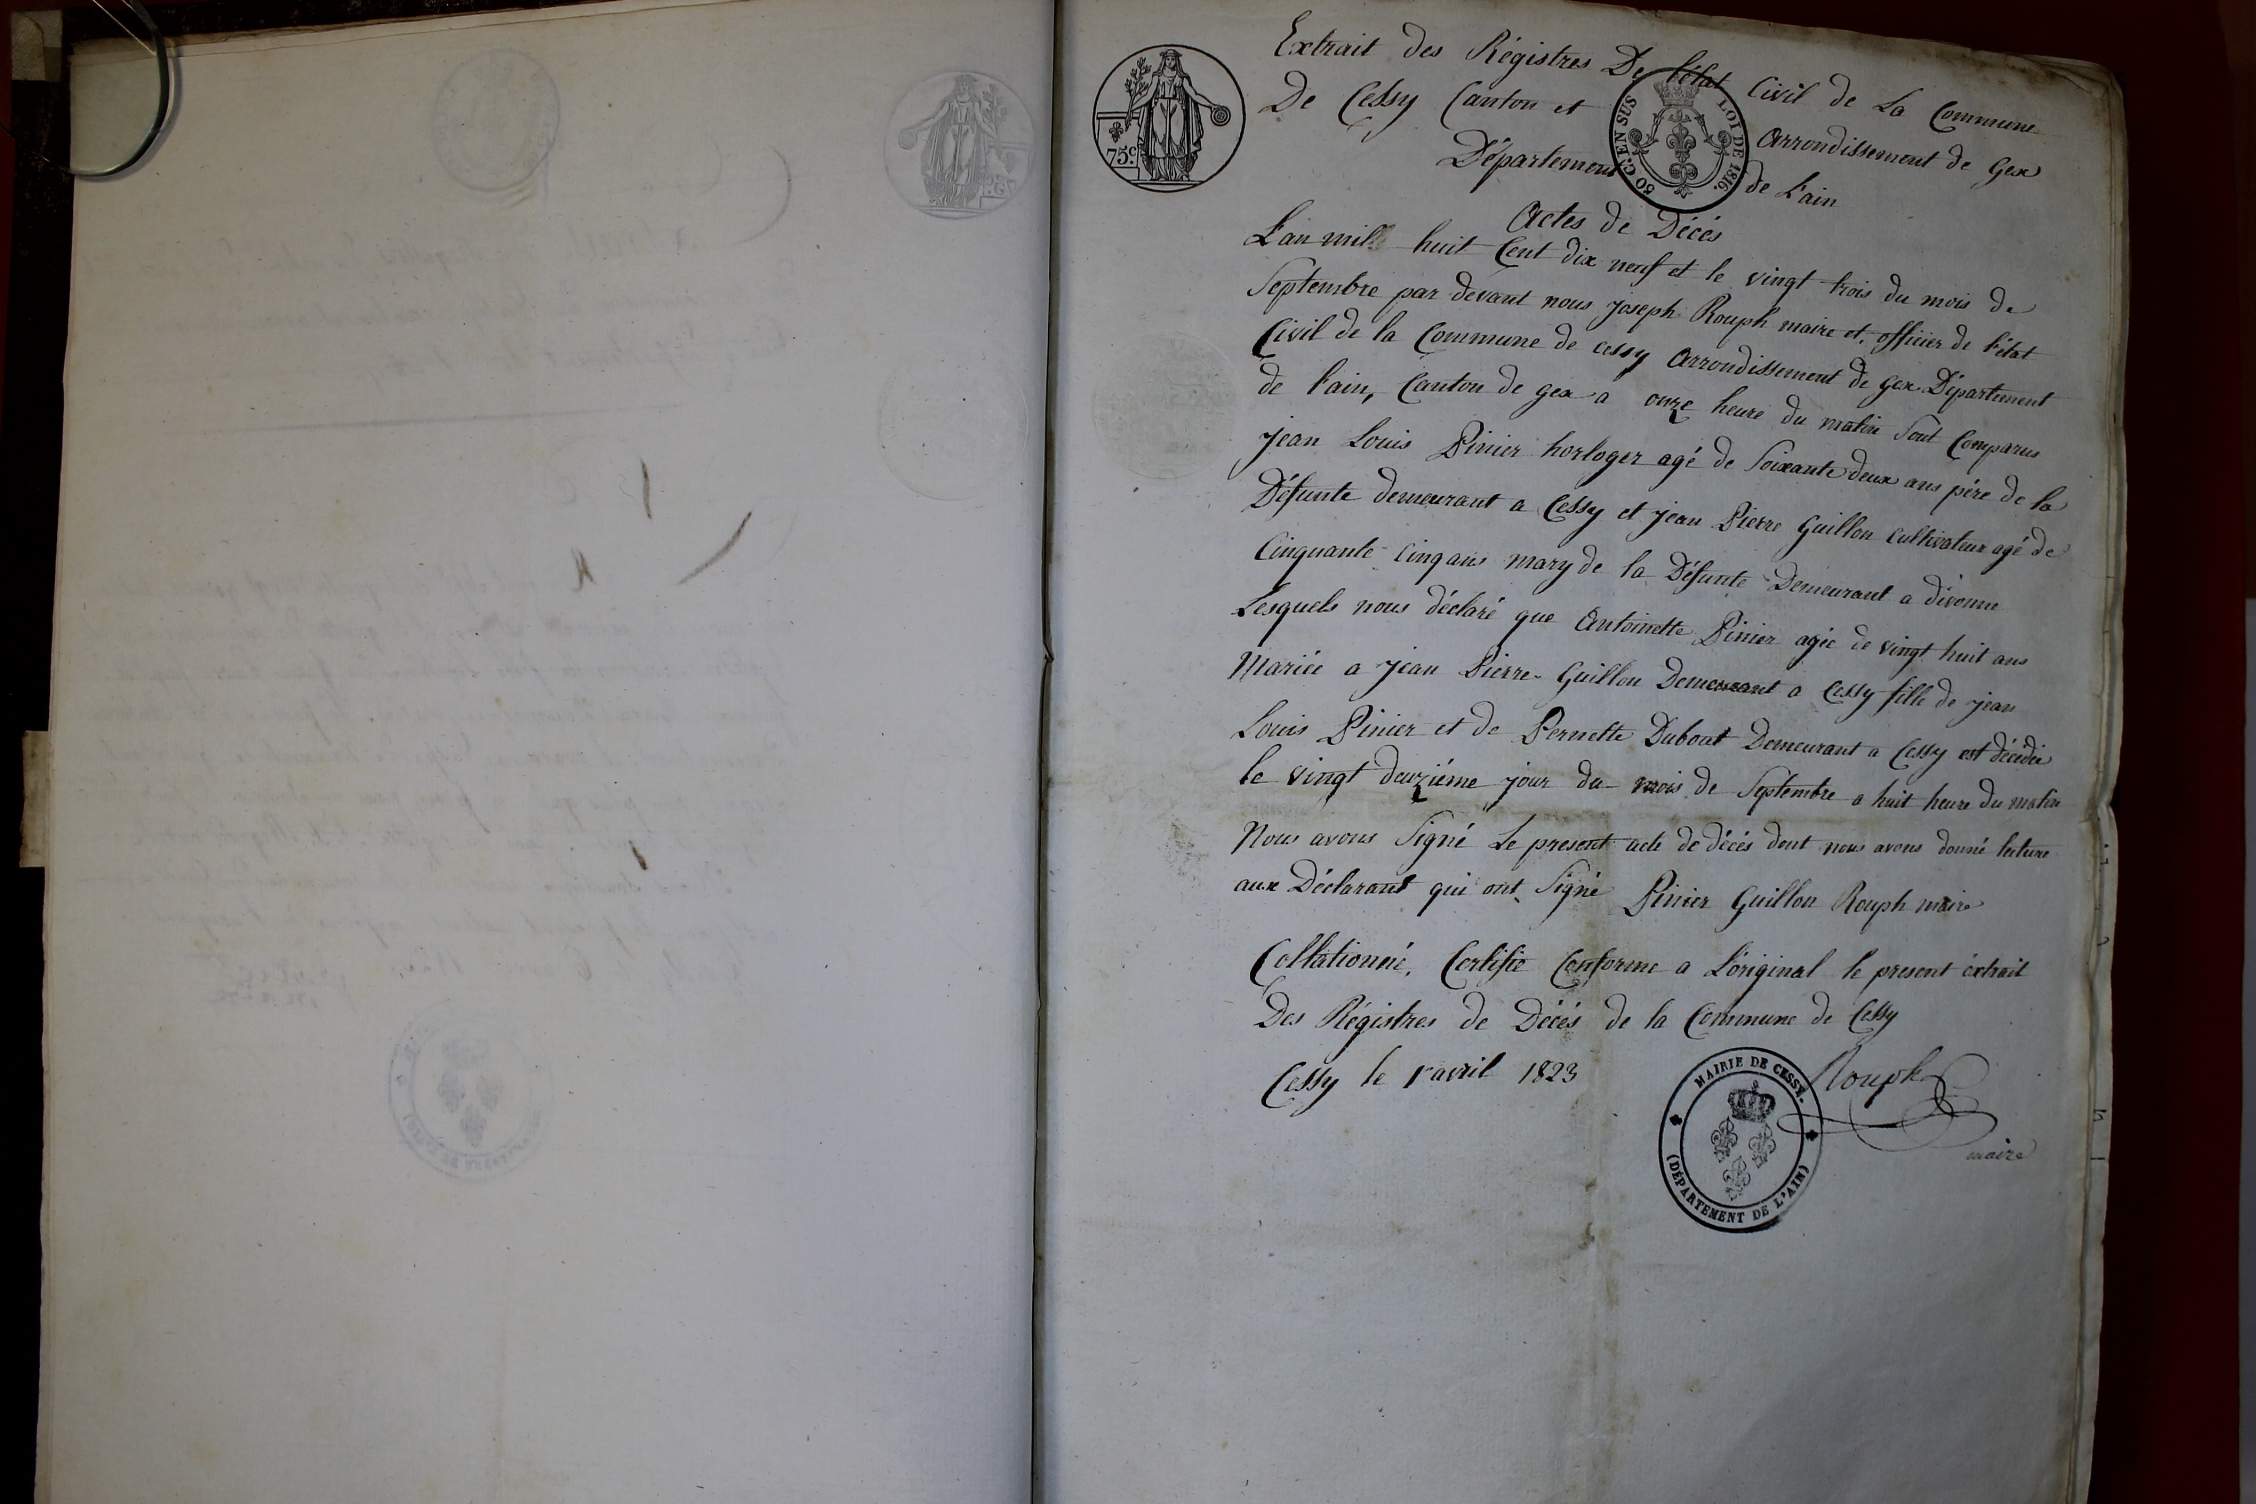 Extrait des Régistres De l'état Civil de La Commune
De Cessy Canton et Arrondissement de Gex
Département de L'ain
75 c.
50 C. EN SUS LOI DE 1816.
Actes de Décés
L'an mille huit Cent dix neuf et le vingt trois du mois de
Septembre par devant nous joseph Rouph maire et officier de l'état
Civil de la Commune de cessy Arrondissement de Gex Département
de l'ain, Canton de gex a onze heure du matin Sont Comparus
jean Louis Pinier horloger agé de Soixante deux ans pére de la
Défunte demeurant a Cessy et jean Pierre Guillon Cultivateur agé de
Cinquante-cinq ans mary de la Défunte Demeurant a divonne
Lesquels nous déclaré que Antoinette Pinier agée de vingt huit ans
Mariée a jean Pierre Guillon Demeurant a Cessy fille de jean
Louis Pinier et de Pernette Dubout Demeurant a Cessy est décédée
le vingt deuziéme jour du mois de Septembre a huit heure du matin
Nous avons Signé Le present acte de décés dont nous avons donné lecture
aux Déclarant qui ont Signé Pinier Guillon Rouph maire
Collationné, Certifié Conforme a L'original le present éxtrait
Des Régistres de Décés de la Commune de Cessy
Cessy le 1er avril 1823
Rouph
maire
MAIRIE DE CESSY.
(DÉPARTEMENT DE L'AIN)